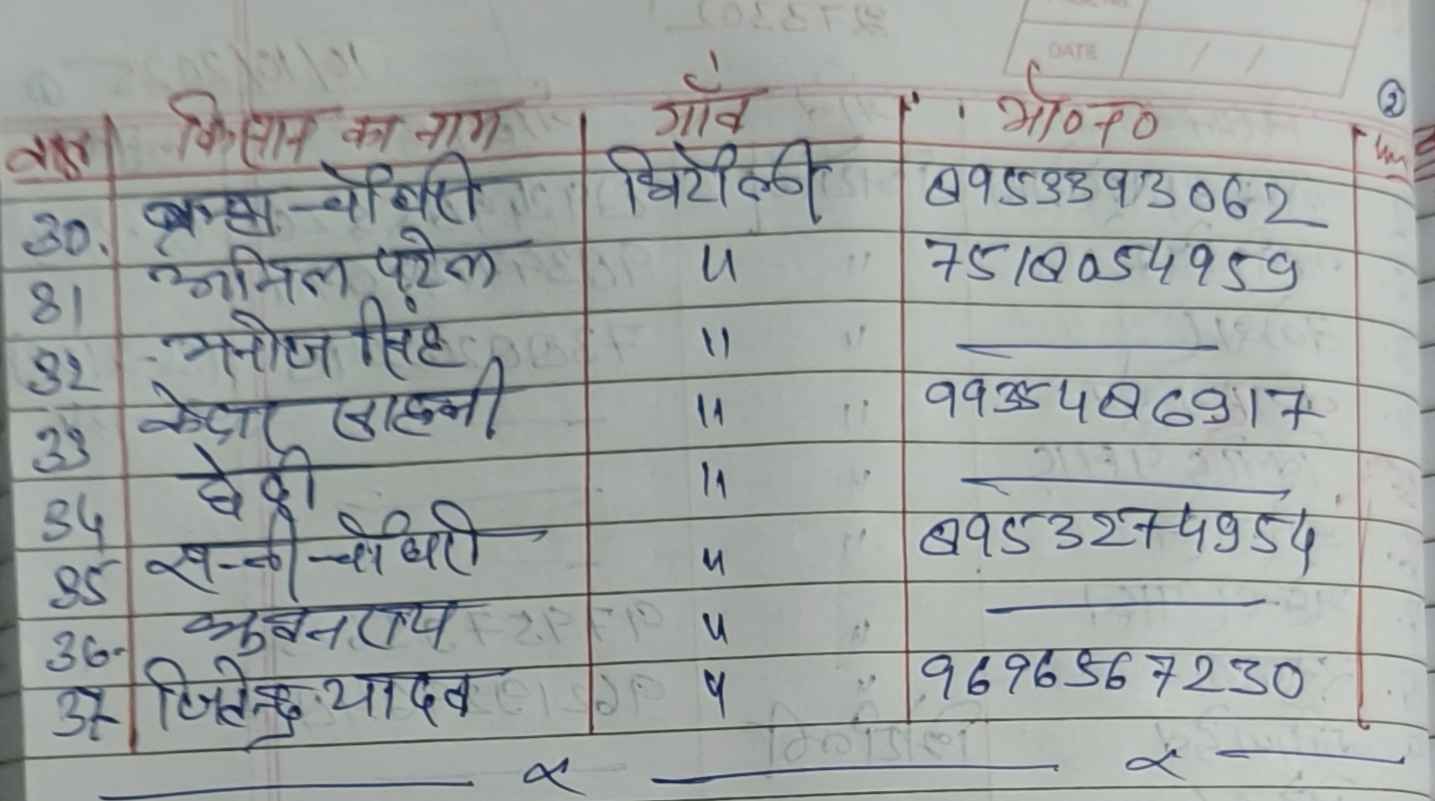 DATE / /
②
किसान का नाम गाँव मो०न०
30. चौधरी 8953393062
31 अनिल पटेल " 7518054959
32 मनोज सिंह "
33 केदार साहनी " 9935486917
34 "
35 सन्नी चौधरी " 8953274954
36. राय "
37 जितेन्द्र यादव " 9696567230